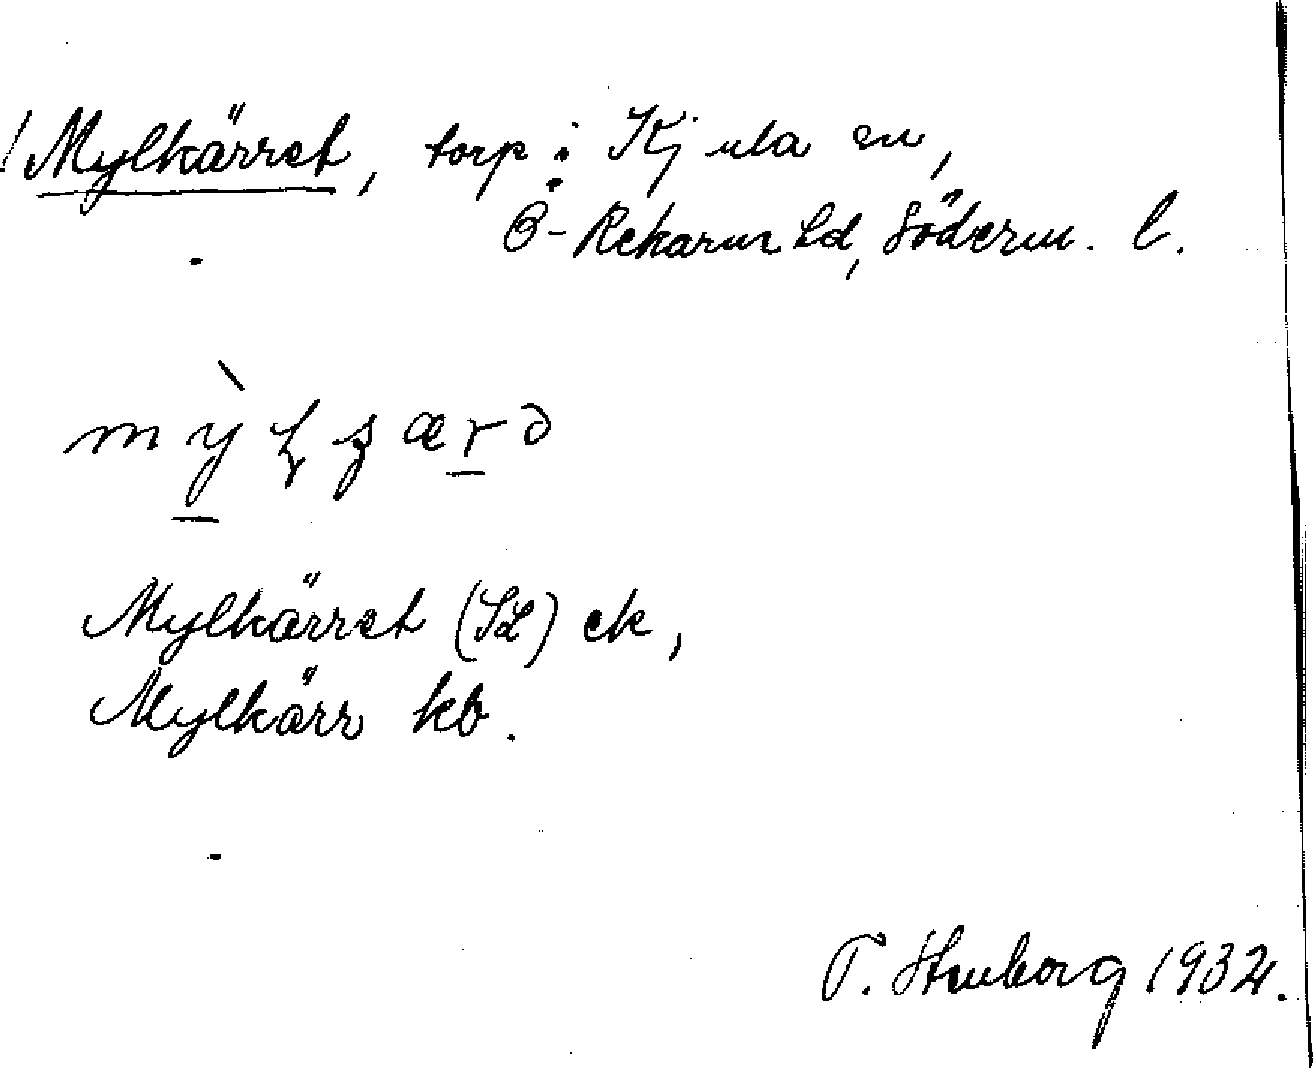 Mylkärret, torp i Kjula sn,
Ö-Rekarne hd, Söderm. l.
Mylkärret (SL) ek,
Mylkärr kb.
T. Stenborg 1932.